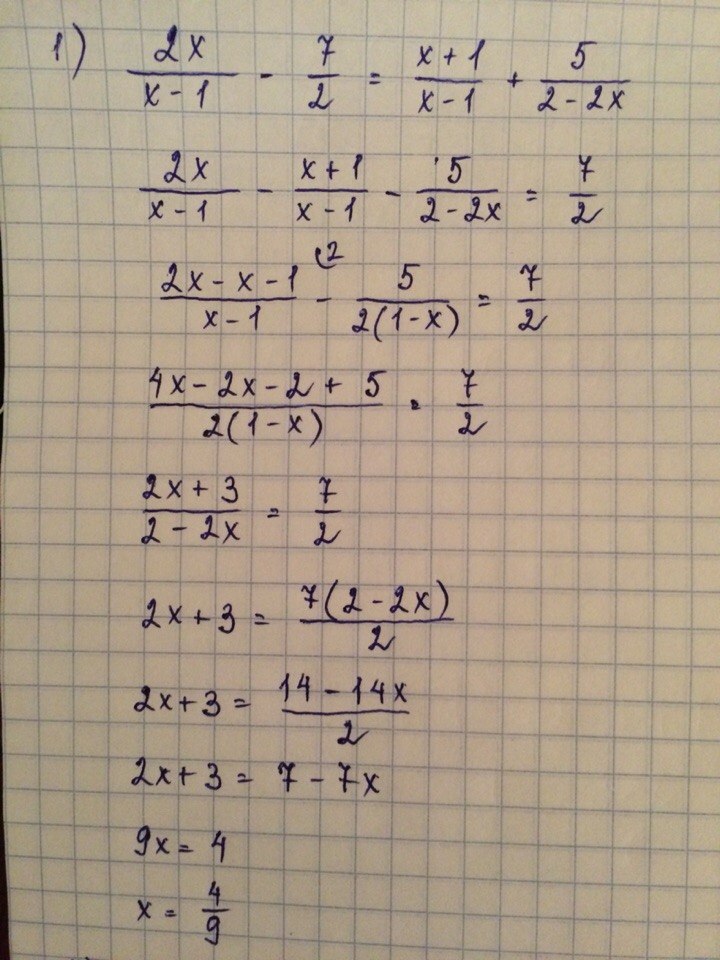 1) 2x/(x-1) - 7/2 = (x+1)/(x-1) + 5/(2-2x)
2x/(x-1) - (x+1)/(x-1) - 5/(2-2x) = 7/2
(2x-x-1)/(x-1) (2 - 5/(2(1-x)) = 7/2
(4x-2x-2+5)/(2(1-x)) = 7/2
(2x+3)/(2-2x) = 7/2
2x+3 = 7(2-2x)/2
2x+3 = (14-14x)/2
2x+3 = 7-7x
9x = 4
x = 4/9